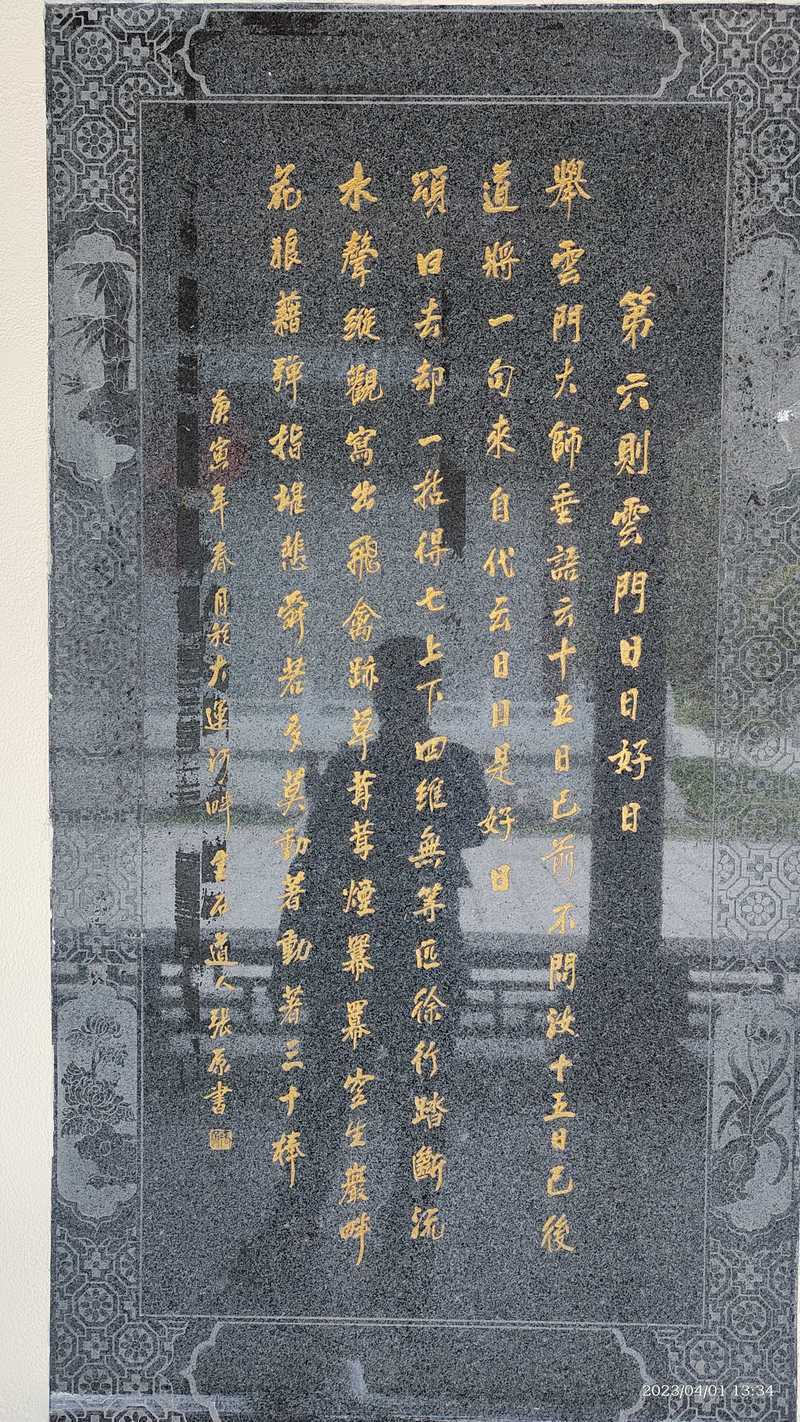 第六則雲門日日好日
舉雲門大師垂語云十五日已前不問汝十五日已後
道將一句來自代云日日是好日
頌曰去却一拈得七上下四維無等匹徐行踏斷流
水聲縱觀寫出飛禽跡草茸茸煙羃羃空生巖畔
花狼藉彈指堪悲舜若多莫動著動著三十棒
庚寅年春月於大運河畔金石道人張原書
2023/04/01 13:34